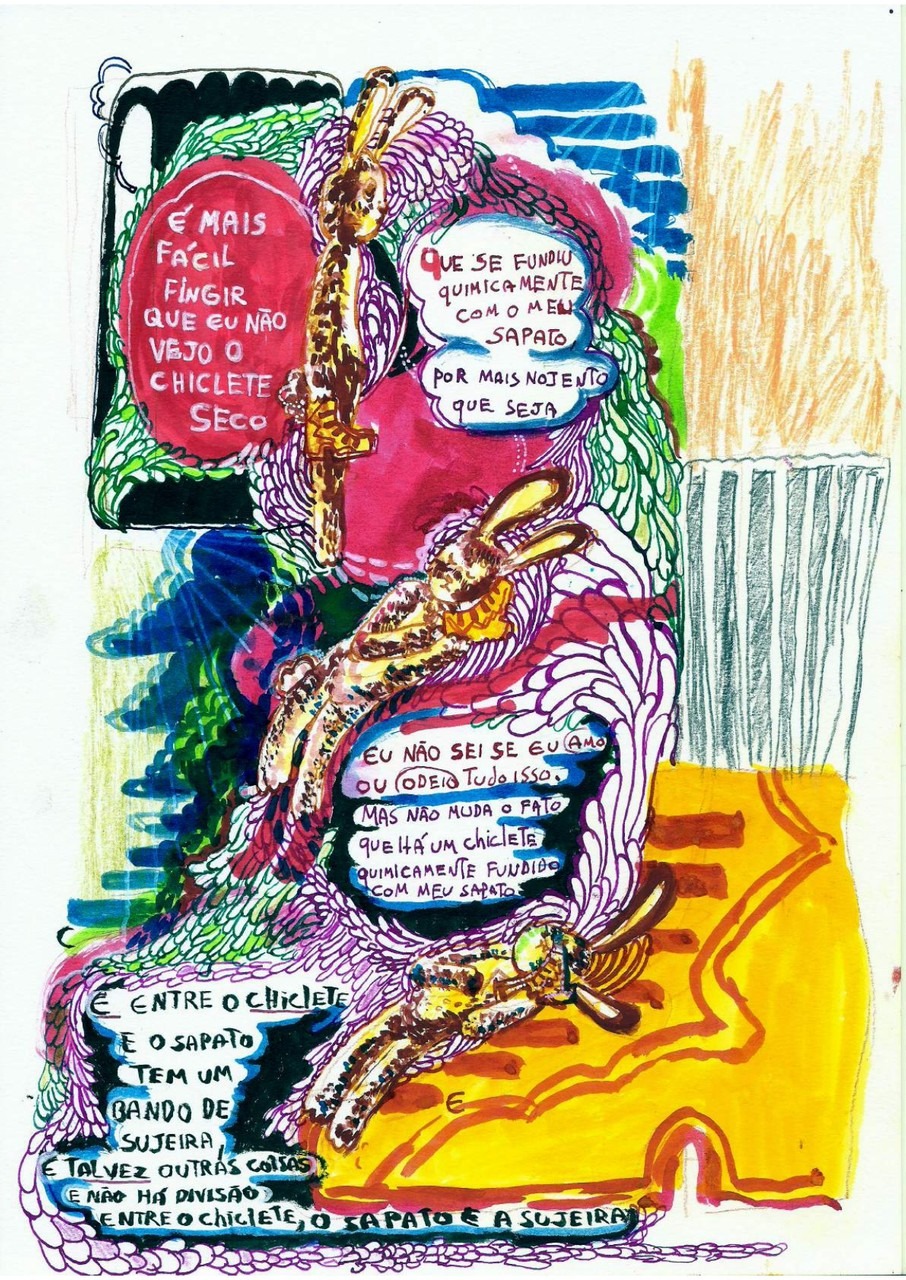 É MAIS
FÁCIL
FINGIR
QUE EU NÃO
VEJO O
CHICLETE
SECO
QUE SE FUNDIU
QUIMICAMENTE
COM O MEU
SAPATO
POR MAIS NOJENTO
QUE SEJA
EU NÃO SEI SE EU AMO
OU ODEIO TUDO ISSO.
MAS NÃO MUDA O FATO
QUE HÁ UM CHICLETE
QUIMICAMENTE FUNDIDO
COM MEU SAPATO
E ENTRE O CHICLETE
E O SAPATO
TEM UM
BANDO DE
SUJEIRA,
E TALVEZ OUTRAS COISAS
E NÃO HÁ DIVISÃO
ENTRE O CHICLETE, O SAPATO E A SUJEIRA
E